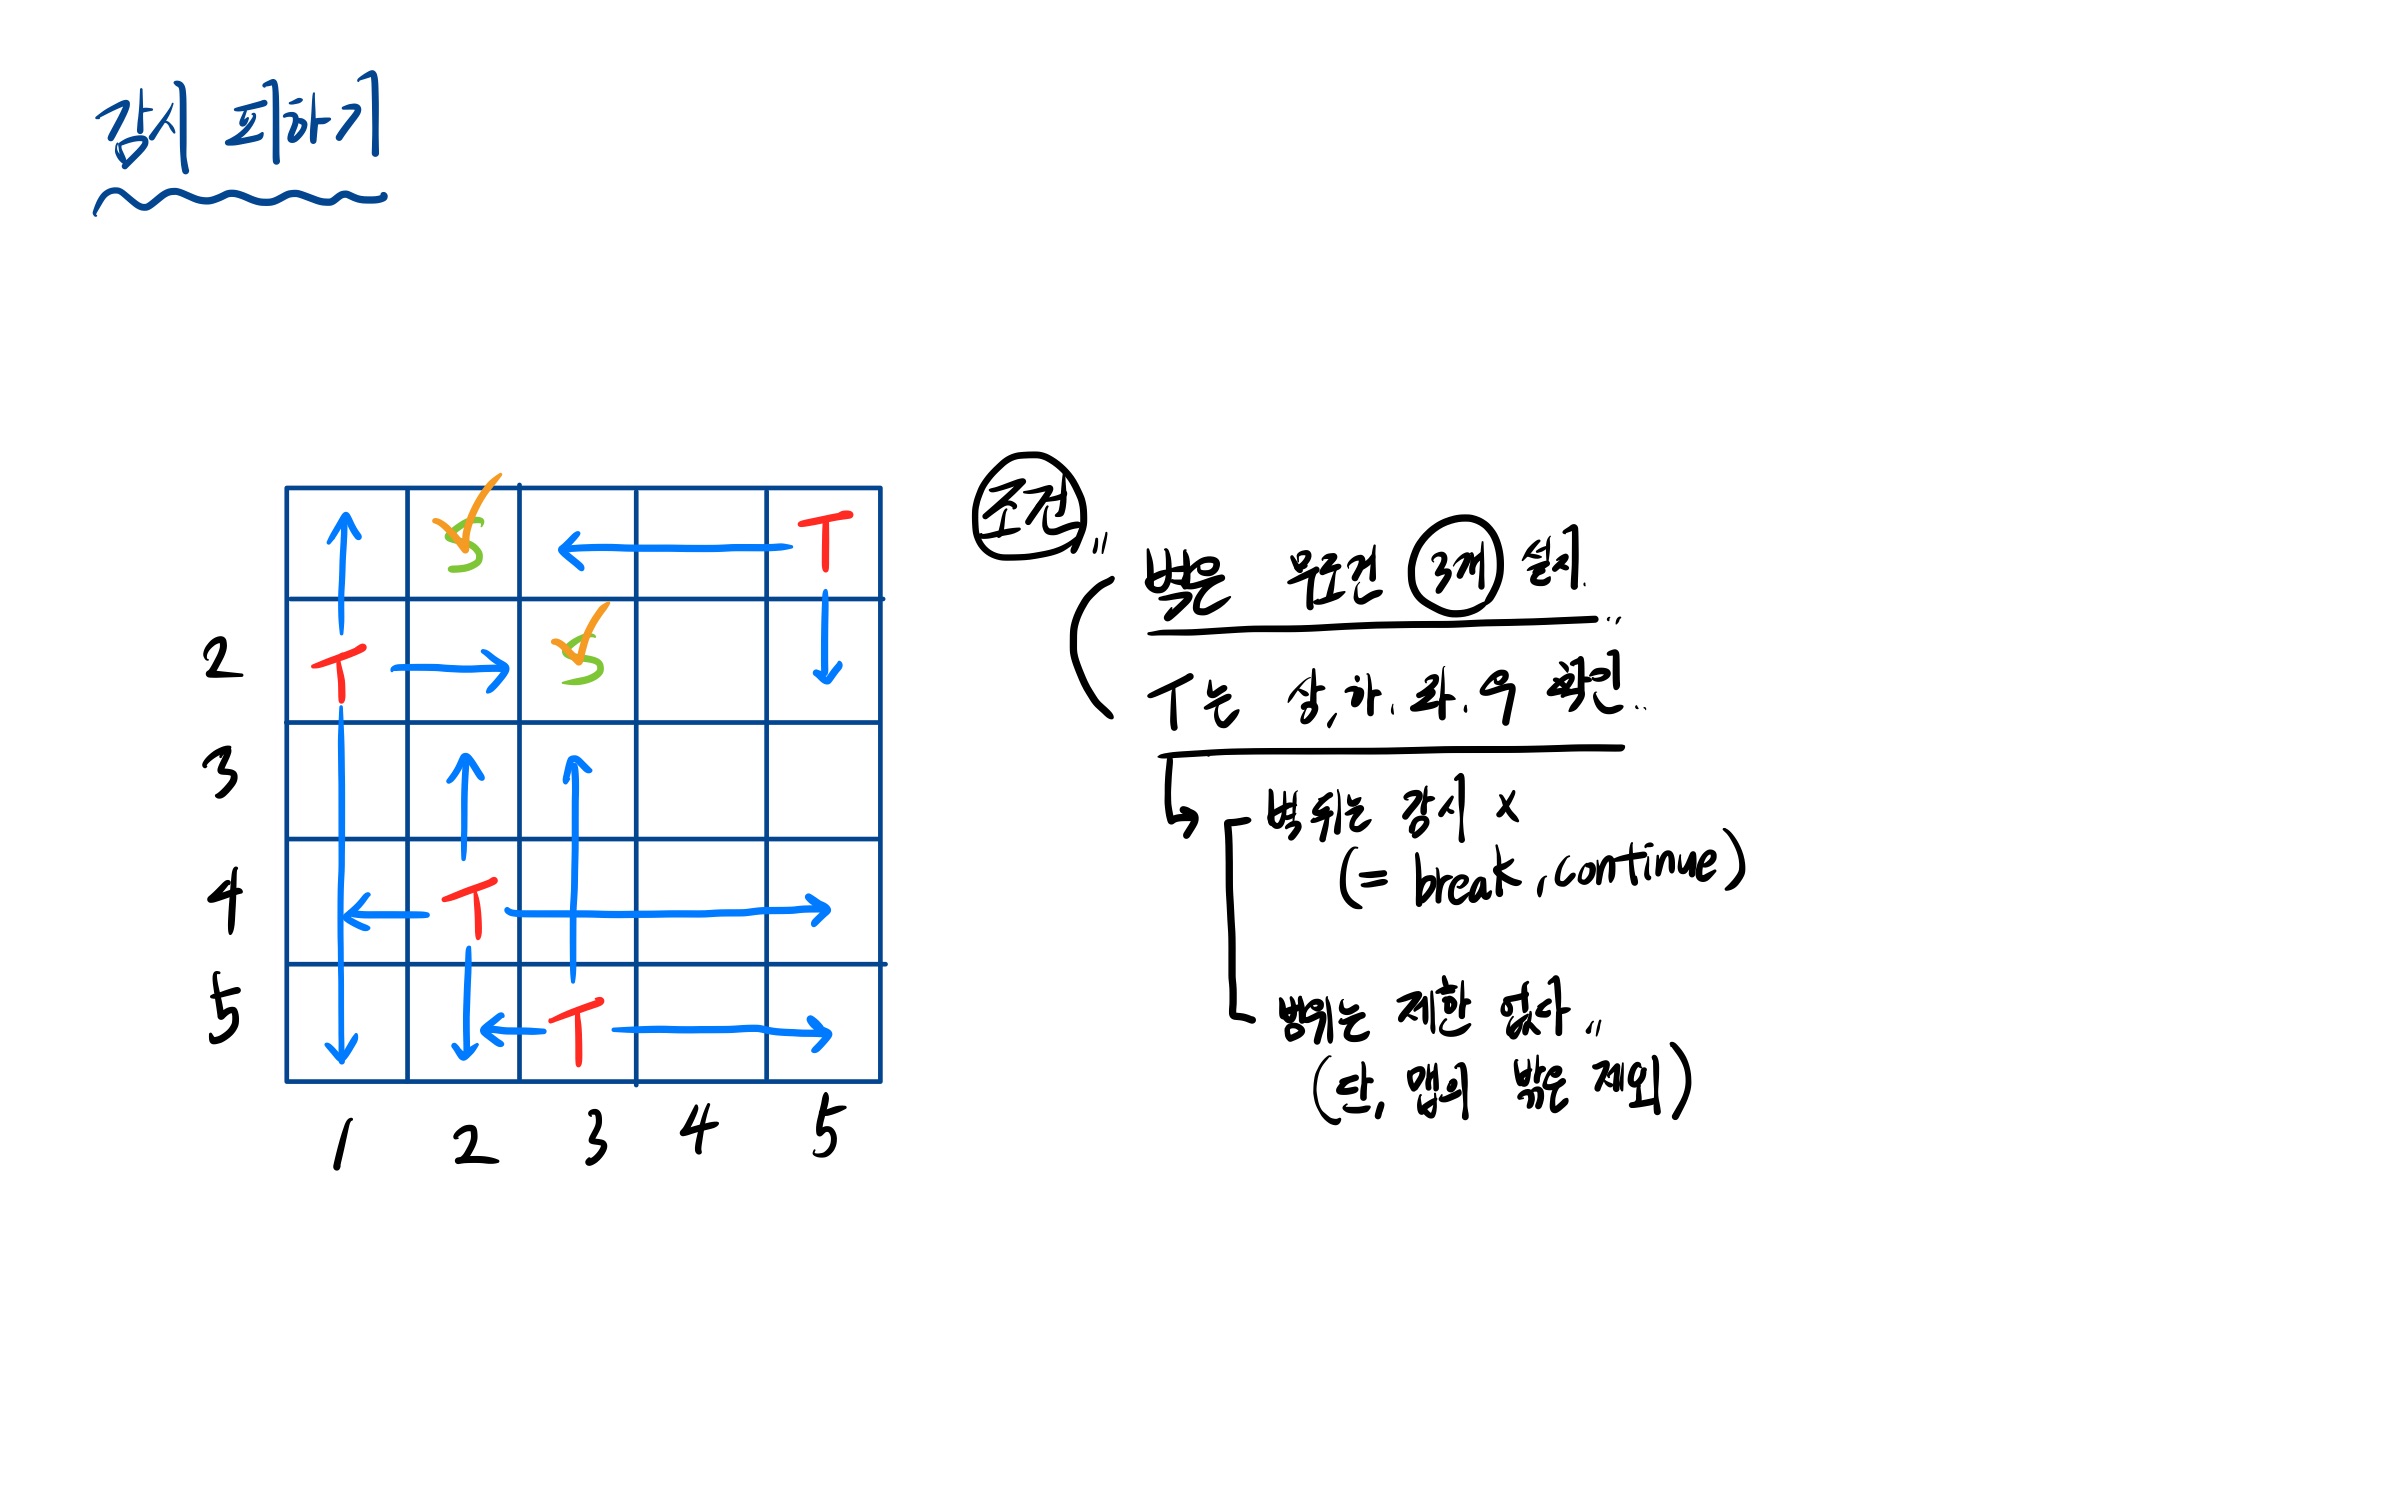 감시 피하기
S T
2 T S
3
4 T
5 T
1 2 3 4 5
조건
벽은 무조건 3개 설치.
T는 상, 하, 좌, 우 확인..
벽뒤는 감시 x
(= break, continue)
범위는 제한 없다..
(단, 맵의 밖은 제외)